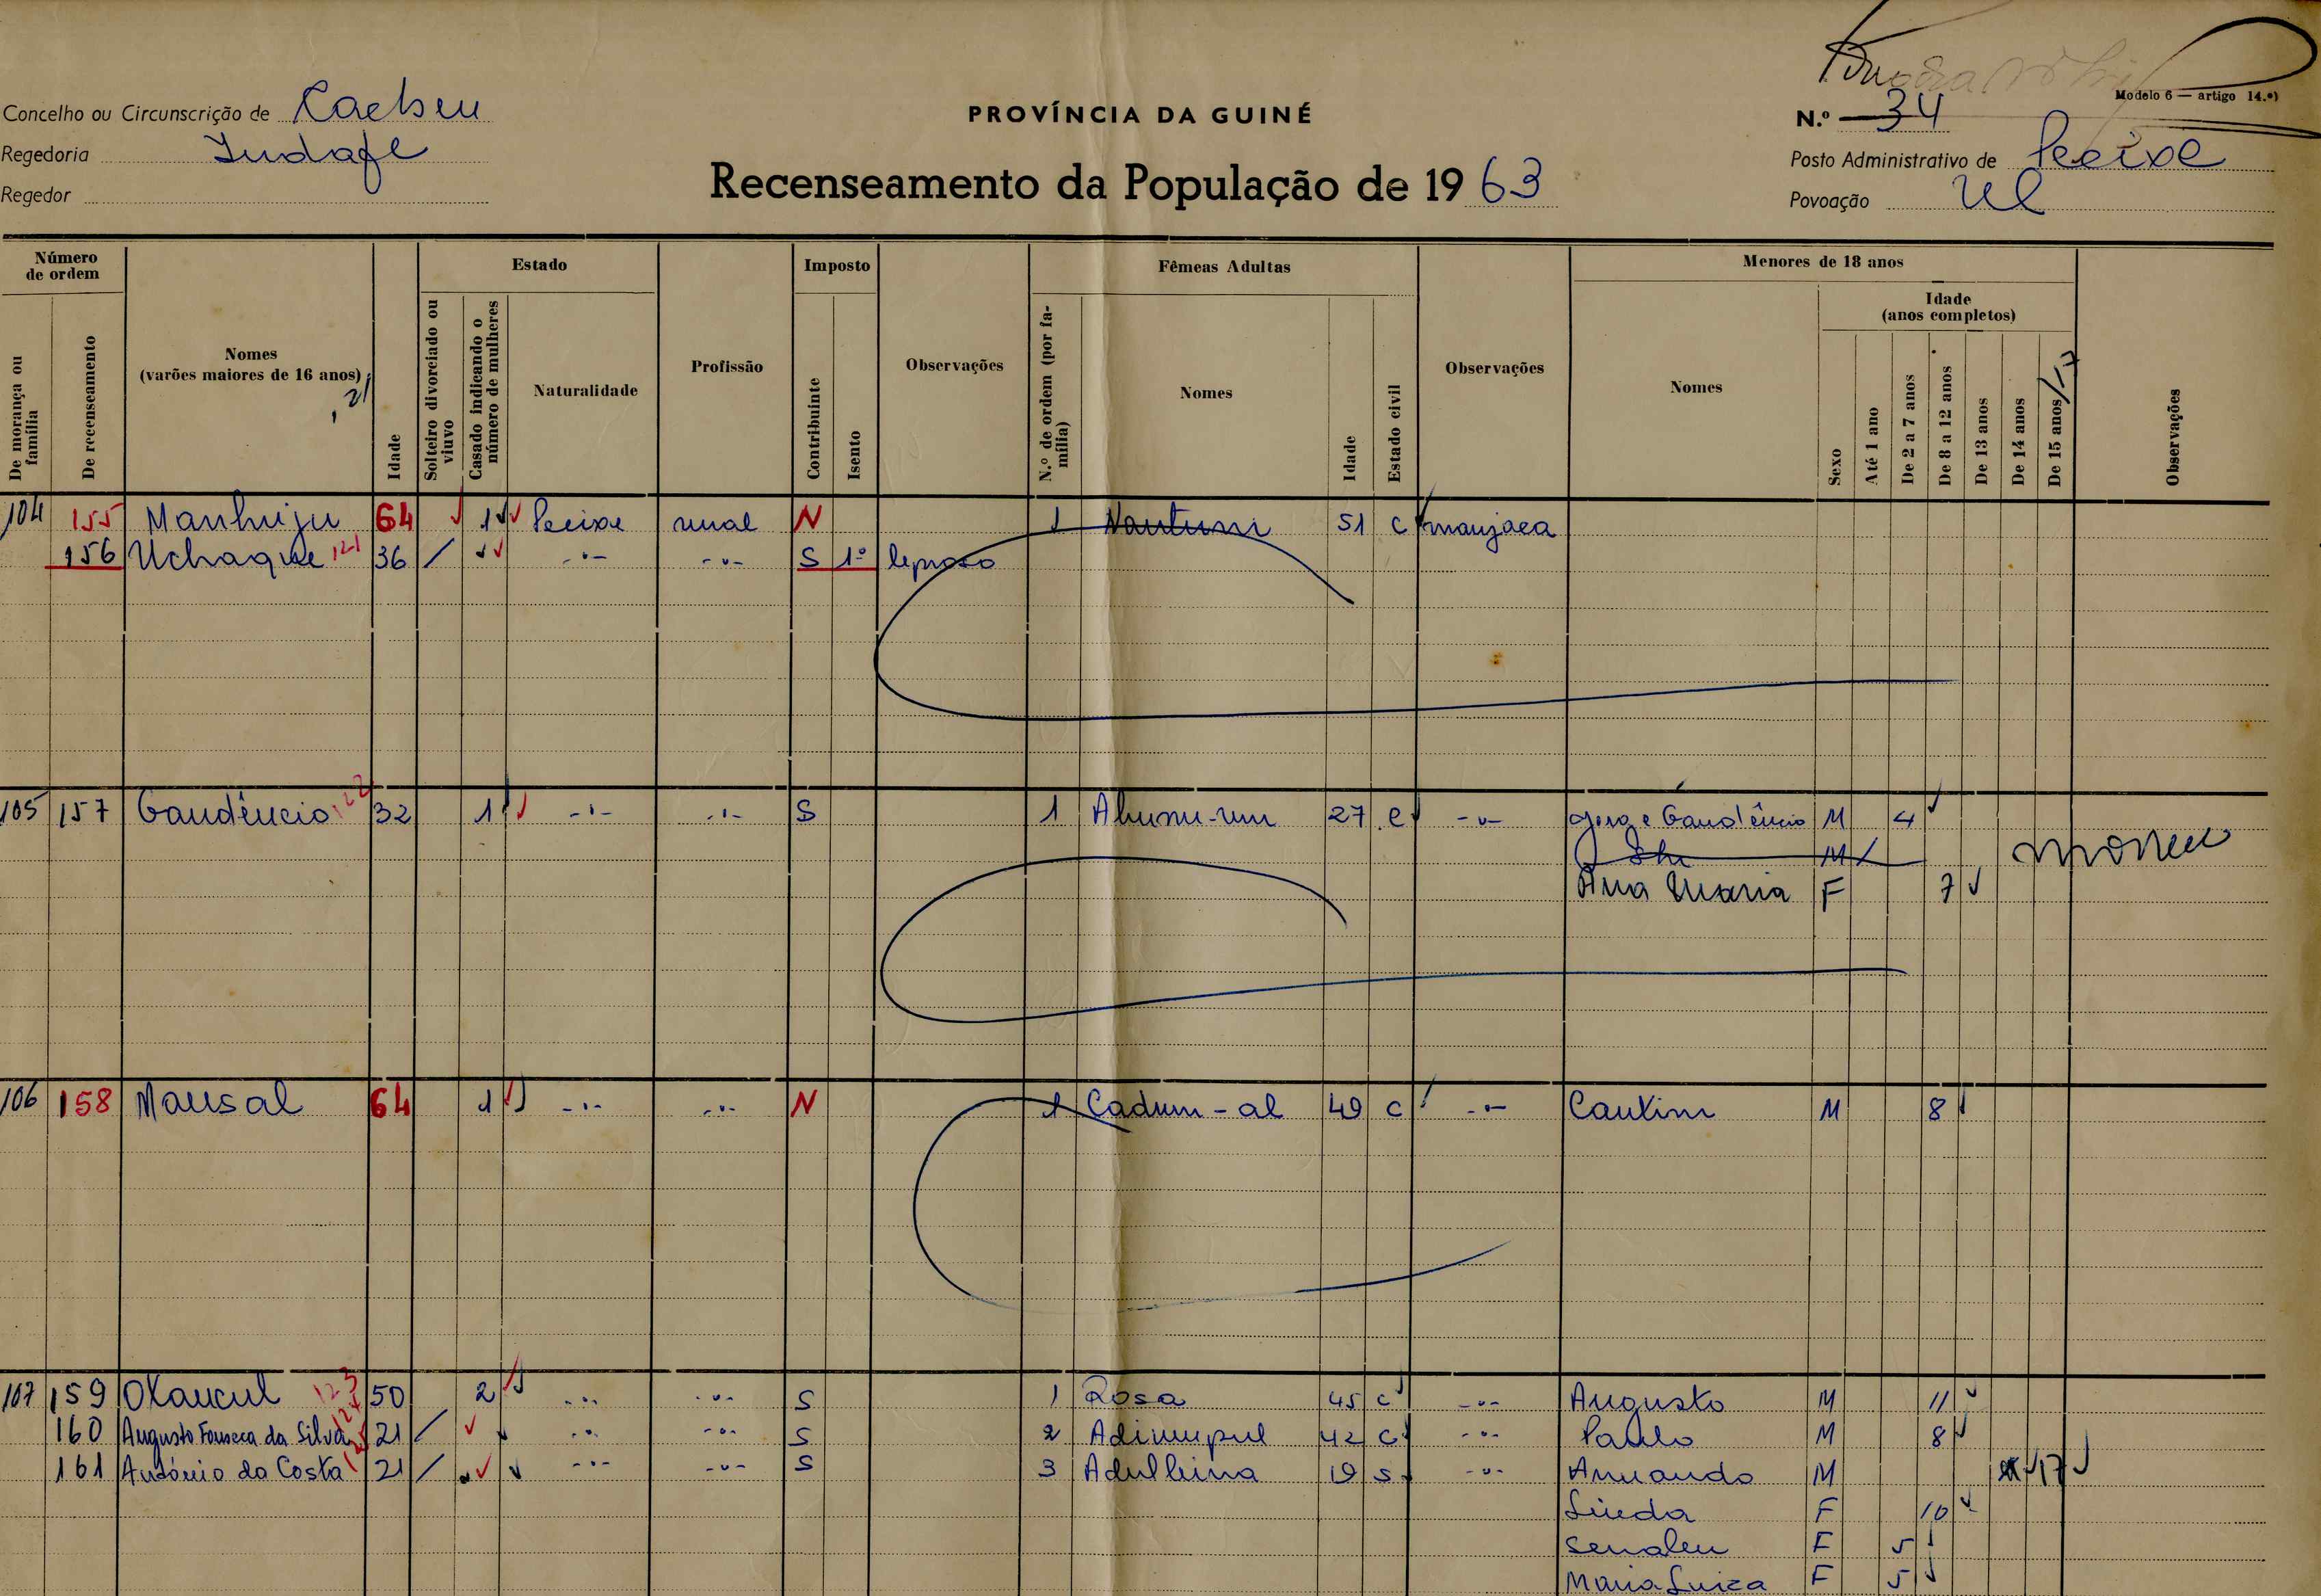 Modelo 6 — artigo 14.º)
Concelho ou Circunscrição de Cacheu
PROVÍNCIA DA GUINÉ
N.º 34
Regedoria Indafe
Posto Administrativo de Pecixe
Recenseamento da População de 1963
Regedor
Povoação Ul
Número de ordem
Estado
Imposto
Fêmeas Adultas
Menores de 18 anos
Idade (anos completos)
De morança ou família
De recenseamento
Nomes (varões maiores de 16 anos)
Idade
Solteiro divorciado ou viuvo
Casado indicando o número de mulheres
Naturalidade
Profissão
Contribuinte
Isento
Observações
N.º de ordem (por família)
Nomes
Idade
Estado civil
Observações
Nomes
Sexo
Até 1 ano
De 2 a 7 anos
De 8 a 12 anos
De 13 anos
De 14 anos
De 15 anos /17
Observações
104 155 Manhiju 64 1 Pecixe rural N 1 Nantumi 51 c manjaca
156 Uchaque 121 36 / -"- -"- S 1º leproso
105 157 Gaudêncio 122 32 1 -"- -"- S 1 Abumu-um 27 c -"- Jorge Gaudêncio M 4
M
Ana Maria F 7
106 158 Mansal 64 1 -"- -"- N 1 Cadum-al 49 c -"- Cautim M 8
107 159 Otancul 123 50 2 -"- -"- S 1 Rosa 45 c -"- Augusto M 11
160 Augusto Fonseca da Silva 124 21 / -"- -"- S 2 Adimpul 42 c -"- Paulo M 8
161 António da Costa 125 21 / -"- -"- S 3 Adulhina 19 s -"- Armando M 17
Lieda F 10
F 5
Maria Luiza F 5